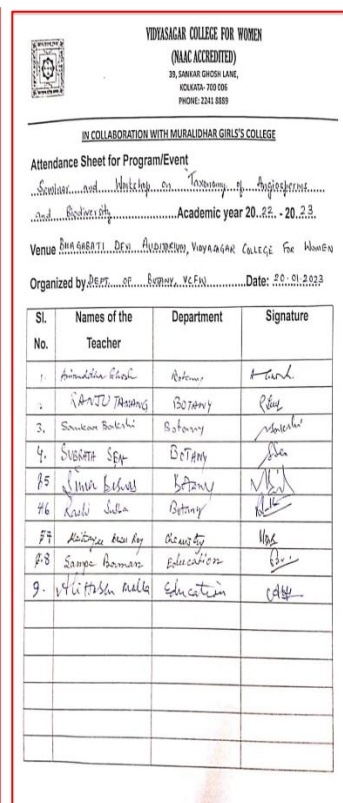 VIDYASAGAR COLLEGE FOR WOMEN
(NAAC ACCREDITED)
39, SANKAR GHOSH LANE,
KOLKATA- 700 006
PHONE: 2241 8889
IN COLLABORATION WITH MURALIDHAR GIRLS'S COLLEGE
Attendance Sheet for Program/Event
Seminar and Workshop on Taxonomy of Angiosperms
and Biodiversity Academic year 2022 - 2023
Venue BHAGABATI DEVI AUDITORIUM, VIDYASAGAR COLLEGE FOR WOMEN
Organized by DEPT. OF BOTANY, VCFW Date: 20-01-2023
Sl. No. Names of the Teacher Department Signature
1. Aniruddha Ghosh Botany
2. RANJU TAMANG BOTANY
3. Sankar Bakshi Botany
4. SUBRATA SEN BOTANY
5 Biswas Botany
6 Botany
7 Roy Chemistry
8 Sampa Barman Education
9. Molla Education